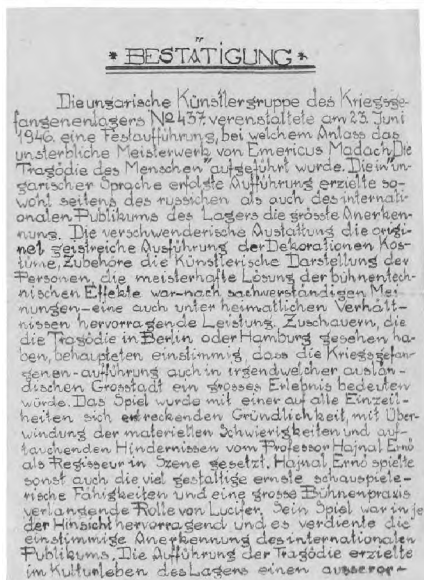 * BESTÄTIGUNG *
Die ungarische Künstlergruppe des Kriegsge-
fangenenlagers No 437. verenstaltete am 23. Juni
1946. eine Festaufführung, bei welchem Anlass das
unsterbliche Meisterwerk von Emericus Madach „Die
Tragödie des Menschen" aufgeführt wurde. Die in un-
garischer Sprache erfolgte Aufführung erzielte so-
wohl seitens des russichen als auch des internati-
onalen Publikums des Lagers die grösste Anerken-
nung. Die verschwenderische Austattung die origi-
nel geistreiche Ausführung der Dekorationen Kos-
tüme, Zubehöre die Künstlerische Darstellung der
Personen, die meisterhafte Lösung der bühnentech-
nischen Effekte war-nach sachverständigen Mei-
nungen-eine auch unter heimatlichen Verhält-
nissen hervorragende Leistung. Zuschauern, die
die Tragödie in Berlin oder Hamburg gesehen ha-
ben, behaupteten einstimmig, dass die Kriegsgefan-
genen-aufführung auch in irgendwelcher auslän-
dischen Grosstadt ein grosses Erlebnis bedeuten
würde. Das Spiel wurde mit einer auf alle Einzel-
heiten sich erstreckenden Gründlichkeit, mit Über-
windung der materiellen Schwierigkeiten und auf-
tauchenden Hindernissen vom Professor Hajnal Ernő
als Regisseur in Szene gesetzt. Hajnal Ernő spielte
sonst auch die viel gestaltige ernste schauspiele-
rische Fähigkeiten und eine grosse Bühnenpraxis
verlangende Rolle von Lucifer. Sein Spiel war in je
der Hinsicht hervorragend und es verdiente die
einstimmige Anerkennung des internationalen
Publikums. Die Aufführung der Tragödie erzielte
im Kulturleben des Lagers einen ausseror-